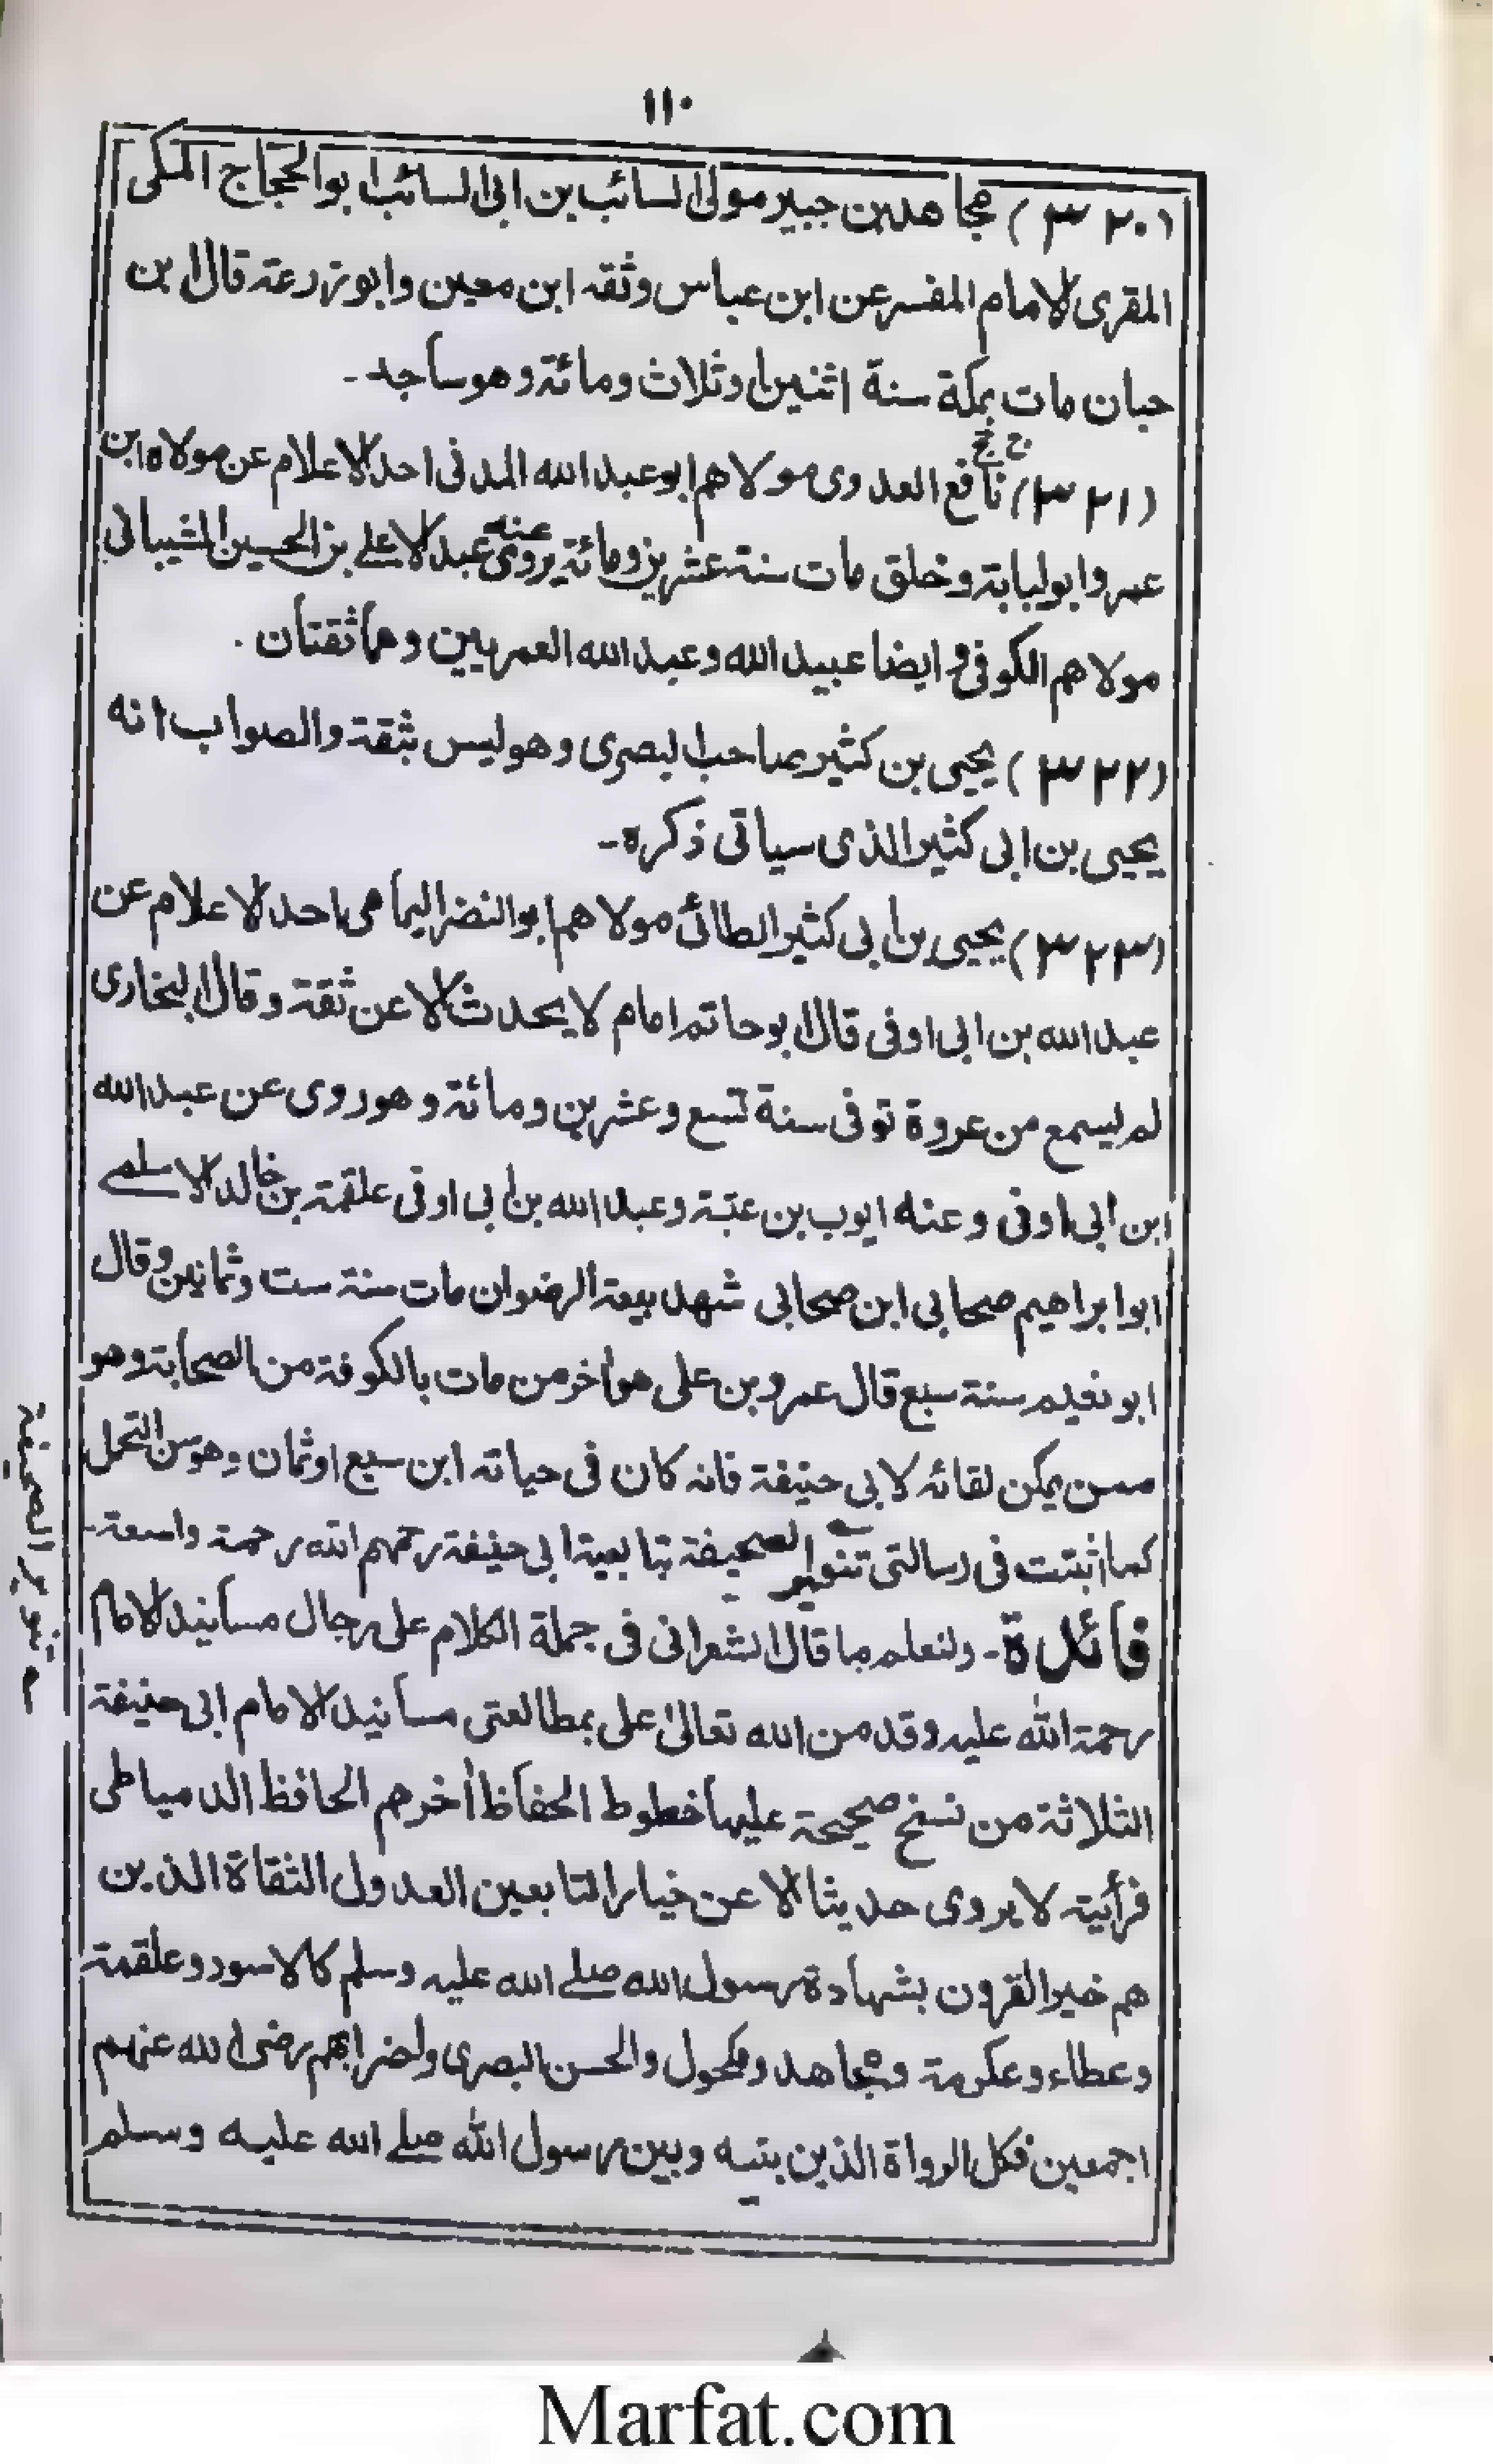 ١١٠
(٣٢٠) مجاهد بن جبير مولى السائب بن ابى السائب ابو الحجاج المكى
المقرى الامام المفسر عن ابن عباس وثقه ابن معين وابو زرعة قال ابن
حبان مات بمكة سنة اثنين او ثلاث ومائة وهو ساجد۔
(٣٢١) نافع العدوى مولاهم ابو عبد الله المدنى احد الاعلام عن مولاه ابن
عمر وابو لبابة وخلق مات سنة عشرين ومائة يروى عنه عبد الاعلے بن الحسين الشيبانى
مولاهم الكوفى و ايضا عبيد الله وعبد الله العمريين وهما ثقتان .
(٣٢٢) يحيى بن كثير صاحب البصرى وهو ليس بثقة والصواب انه
يحيى بن ابى كثير الذى سياتى ذكره۔
(٣٢٣) يحيى بن ابى كثير الطائى مولاهم ابو النضر اليمامى احد الاعلام عن
عبد الله بن ابى اوفى قال ابو حاتم امام لا يحدث الا عن ثقة وقال البخارى
لم يسمع من عروة توفى سنة تسع وعشرين ومائة وهو روى عن عبد الله
ابن ابى اوفى وعنه ايوب بن عتبة وعبد الله بن ابى اوفى علقمة بن خالد الاسلمے
ابو ابراهيم صحابى ابن صحابى شهد بيعة الرضوان مات سنة ست وثمانين وقال
ابو نعيم سنة سبع قال عمرو بن على هو اخر من مات بالكوفة من الصحابة وهو
ممن يمكن لقائه لابى حنيفة فانه كان فى حياته ابن سبع او ثمان وهو سن التحمل
كما اثبتت فى رسالتى تنوير الصحيفة بتابعية ابى حنيفة رحمهم الله رحمة واسعة۔
فائدة۔ ولنعلم ما قال الشعرانى فى جملة الكلام على رجال مسانيد الامام
رحمة الله عليه وقد من الله تعالىٰ على بمطالعتى مسانيد الامام ابى حنيفة
الثلاثة من نسخ صحيحة عليها خطوط الحفاظ أخرهم الحافظ الدمياطى
فرأيته لا يروى حديثا الا عن خيار التابعين العدول الثقاة الذين
هم خير القرون بشهادة رسول الله صلے الله عليه وسلم كالاسود وعلقمة
وعطاء وعكرمة ومجاهد ومكحول والحسن البصرى ولضرابهم رضى الله عنهم
اجمعين فكل الرواة الذين بينه وبين رسول الله صلے الله عليه وسلم
تنوير الصحيفة
Marfat.com